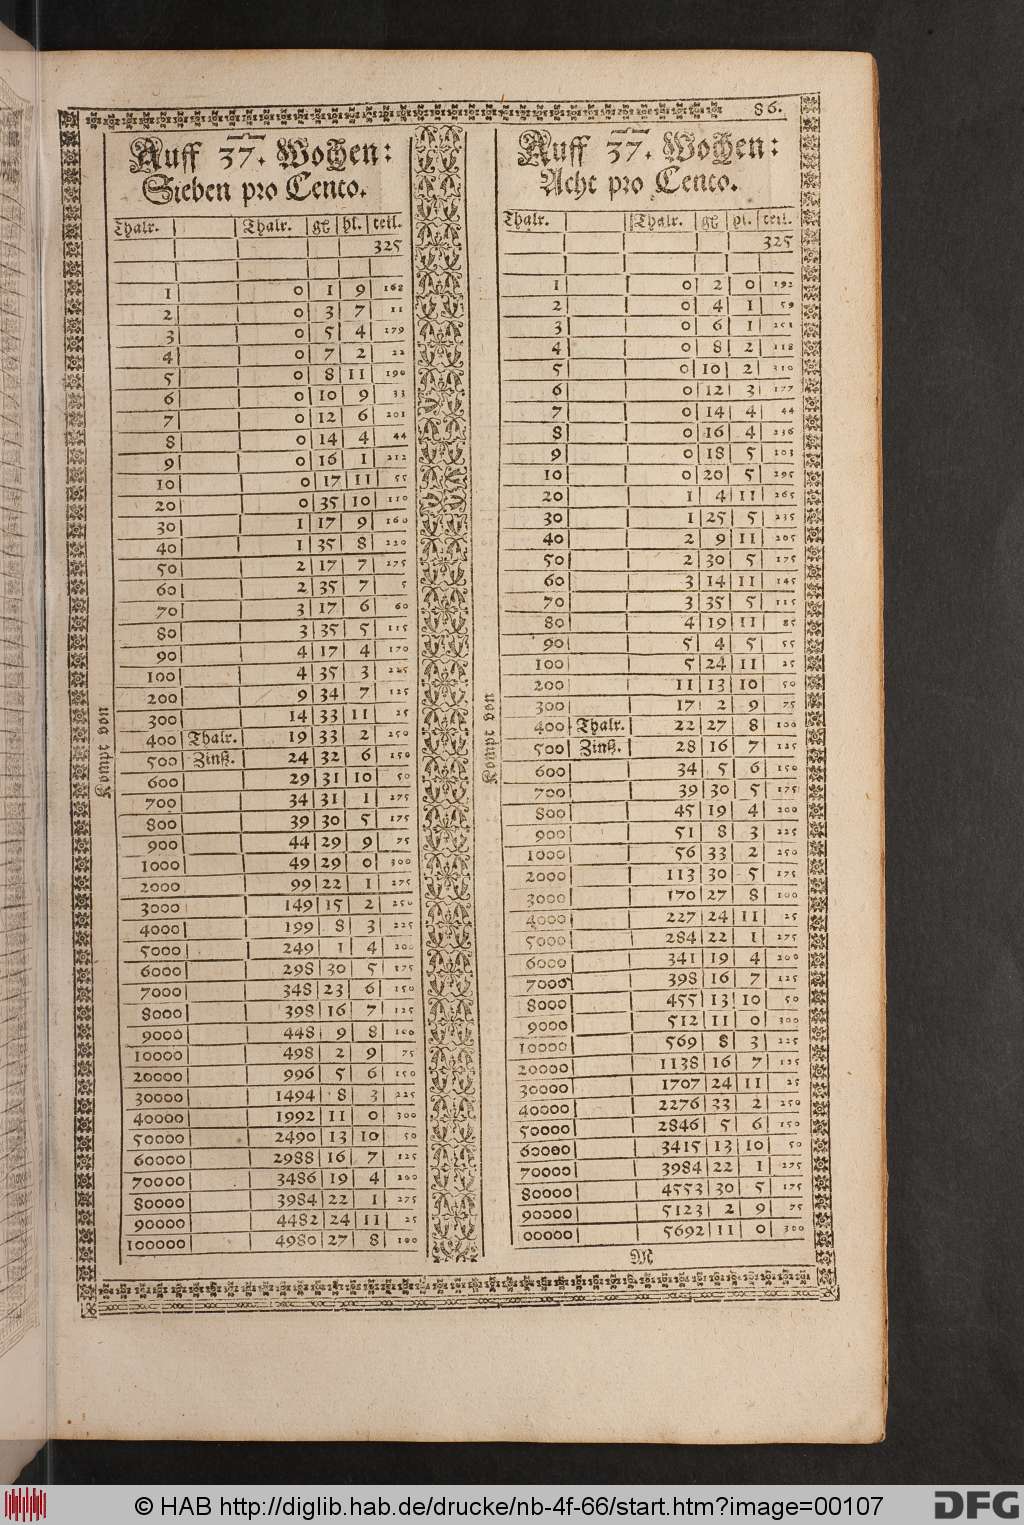 86.
Auff 37. Wochen:
Sieben pro Cento.
Thalr. Thalr. gꝉ hl. teil.
325
1 0 1 9 168
2 0 3 7 11
3 0 5 4 179
4 0 7 2 22
5 0 8 11 190
6 0 10 9 33
7 0 12 6 201
8 0 14 4 44
9 0 16 1 212
10 0 17 11 55
20 0 35 10 110
30 1 17 9 160
40 1 35 8 220
50 2 17 7 275
60 2 35 7 5
70 3 17 6 60
80 3 35 5 115
90 4 17 4 170
100 4 35 3 225
200 9 34 7 125
300 14 33 11 25
400 Thalr. 19 33 2 250
500 Zinß. 24 32 6 150
600 29 31 10 50
700 34 31 1 275
800 39 30 5 175
900 44 29 9 75
1000 49 29 0 300
2000 99 22 1 275
3000 149 15 2 250
4000 199 8 3 225
5000 249 1 4 200
6000 298 30 5 175
7000 348 23 6 150
8000 398 16 7 125
9000 448 9 8 100
10000 498 2 9 75
20000 996 5 6 150
30000 1494 8 3 225
40000 1992 11 0 300
50000 2490 13 10 50
60000 2988 16 7 125
70000 3486 19 4 200
80000 3984 22 1 275
90000 4482 24 11 25
100000 4980 27 8 100
Kompt von
Auff 37. Wochen:
Acht pro Cento.
Thalr. Thalr. gꝉ hl. teil.
325
1 0 2 0 192
2 0 4 1 59
3 0 6 1 251
4 0 8 2 118
5 0 10 2 310
6 0 12 3 177
7 0 14 4 44
8 0 16 4 236
9 0 18 5 103
10 0 20 5 295
20 1 4 11 265
30 1 25 5 235
40 2 9 11 205
50 2 30 5 175
60 3 14 11 145
70 3 35 5 115
80 4 19 11 85
90 5 4 5 55
100 5 24 11 25
200 11 13 10 50
300 17 2 9 75
400 Thalr. 22 27 8 100
500 Zinß. 28 16 7 125
600 34 5 6 150
700 39 30 5 175
800 45 19 4 200
900 51 8 3 225
1000 56 33 2 250
2000 113 30 5 175
3000 170 27 8 100
4000 227 24 11 25
5000 284 22 1 275
6000 341 19 4 200
7000 398 16 7 125
8000 455 13 10 50
9000 512 11 0 300
10000 569 8 3 225
20000 1138 16 7 125
30000 1707 24 11 25
40000 2276 33 2 250
50000 2846 5 6 150
60000 3415 13 10 50
70000 3984 22 1 275
80000 4553 30 5 175
90000 5123 2 9 75
00000 5692 11 0 300
Kompt von
M
© HAB http://diglib.hab.de/drucke/nb-4f-66/start.htm?image=00107
DFG